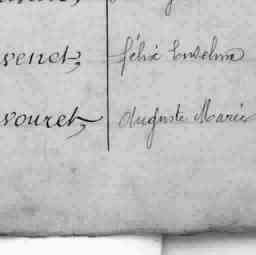 venet, félix Anselme
vouret, Auguste Marie